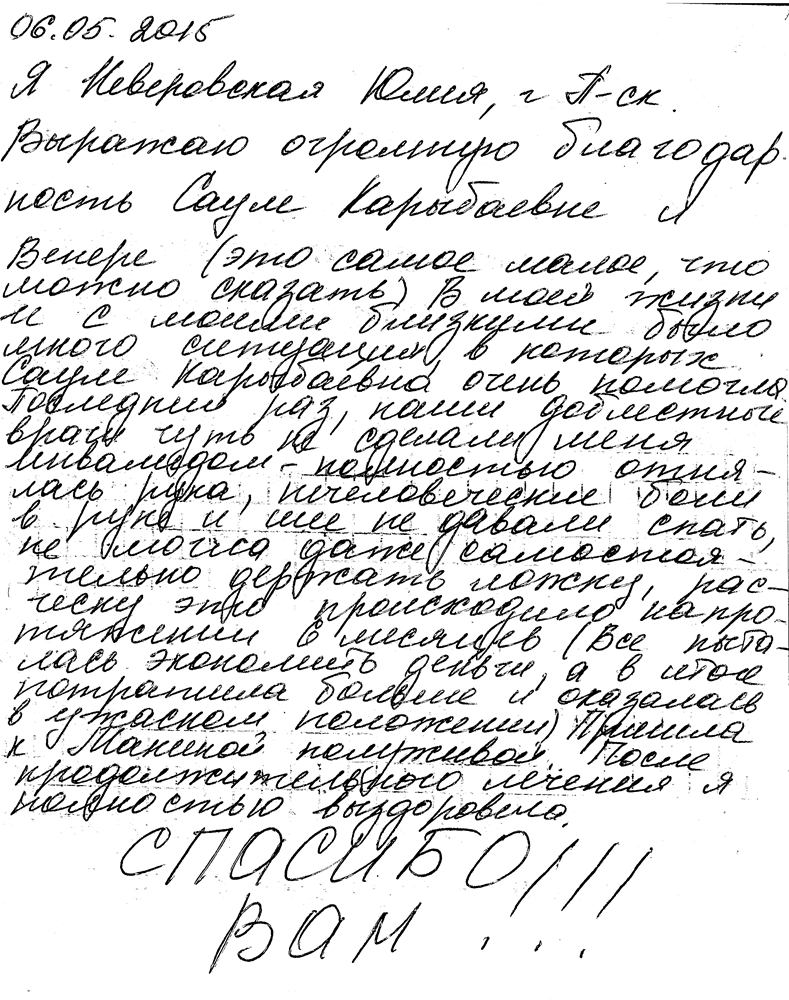 06.05.2015
Я Неверовская Юлия, г П-ск.
Выражаю огромную благодар-
ность Сауле Карыбаевне и
Венере (это самое малое, что
можно сказать) В моей жизни
и с моими близкими было
много ситуаций, в которых
Сауле Карыбаевна очень помогла.
Последний раз, наши доблестные
врачи чуть не сделали меня
инвалидом - полностью отня-
лась рука, нечеловеческие боли
в руке и шее не давали спать,
не могла даже самостоя-
тельно держать ложку, рас-
ческу это происходило на про-
тяжении 6 месяцев (Все пыта-
лась экономить деньги, а в итоге
потратила больше и оказалась
в ужасном положении) Пришла
к Макиной полуживой. После
продолжительного лечения я
полностью выздоровела.
СПАСИБО!!!
ВАМ!!!